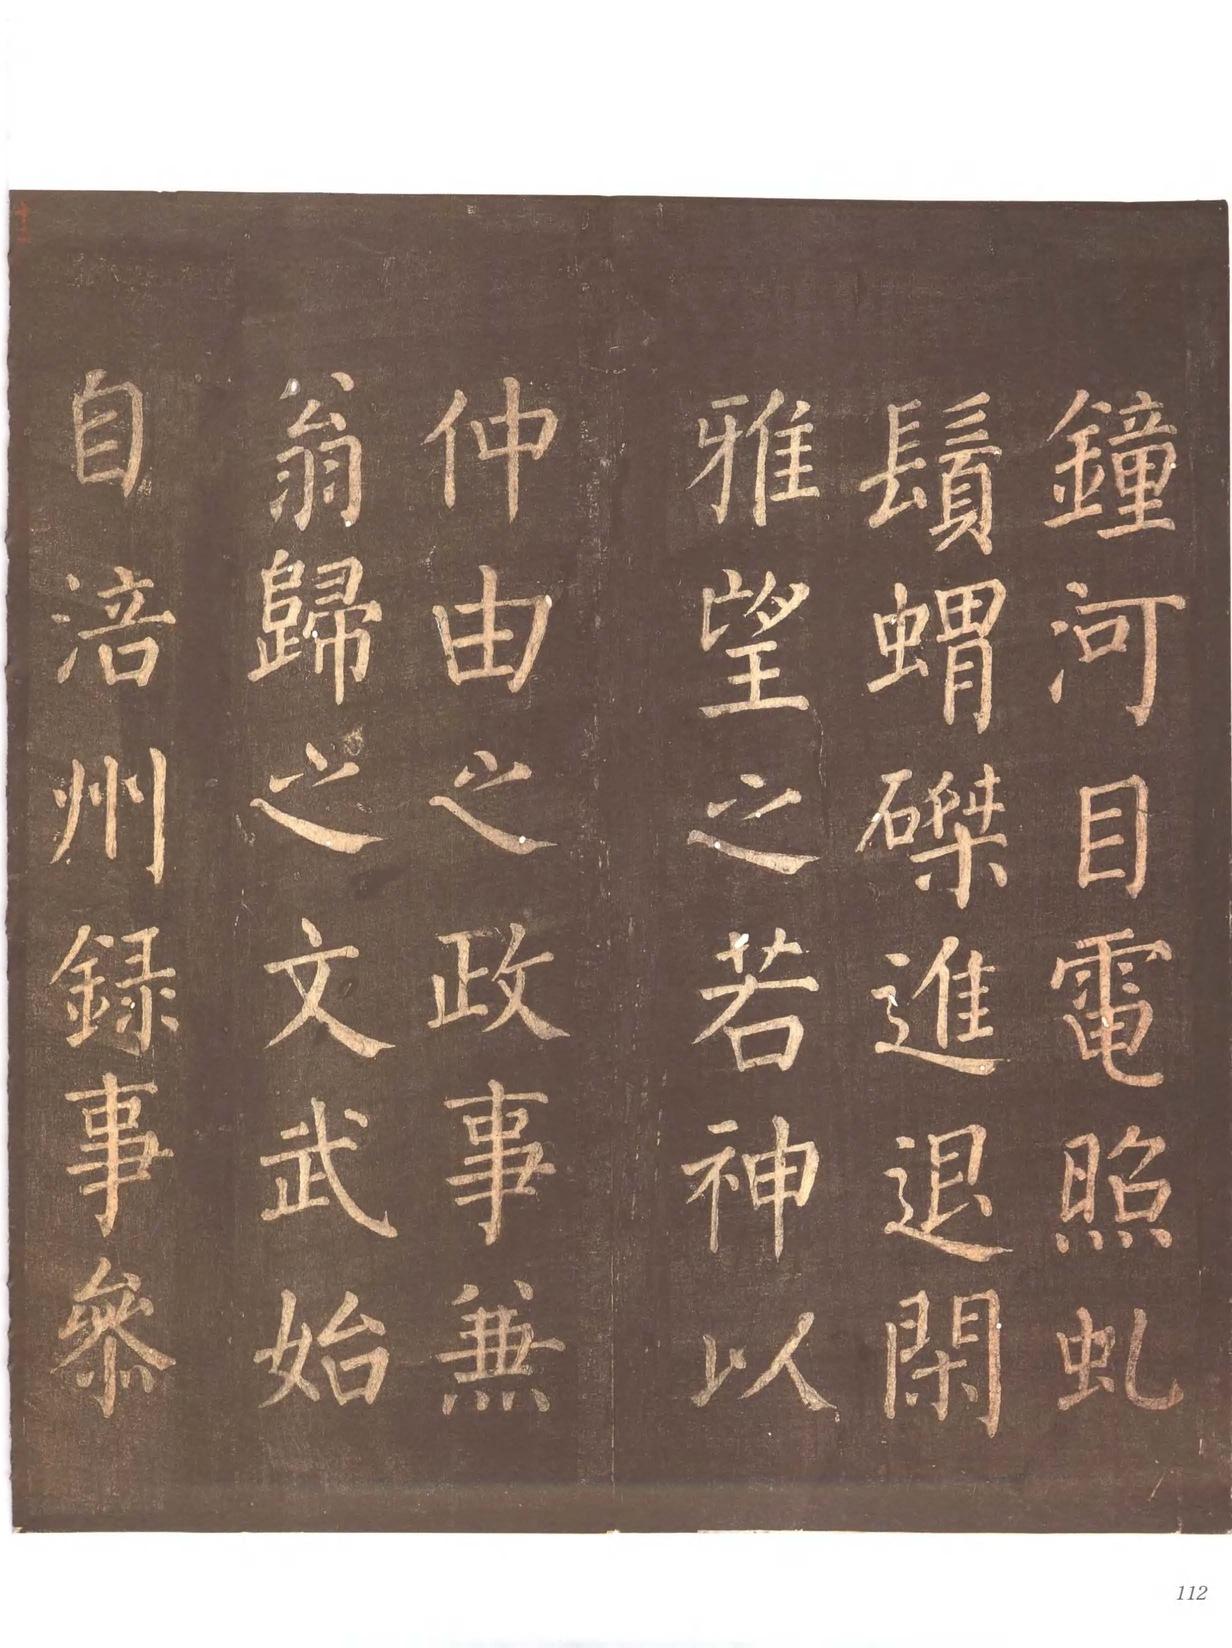 鐘河目電照虬
鬚蝟磔進退閑
雅望之若神以
仲由之政事兼
翁歸之文武始
自涪州録事參
112